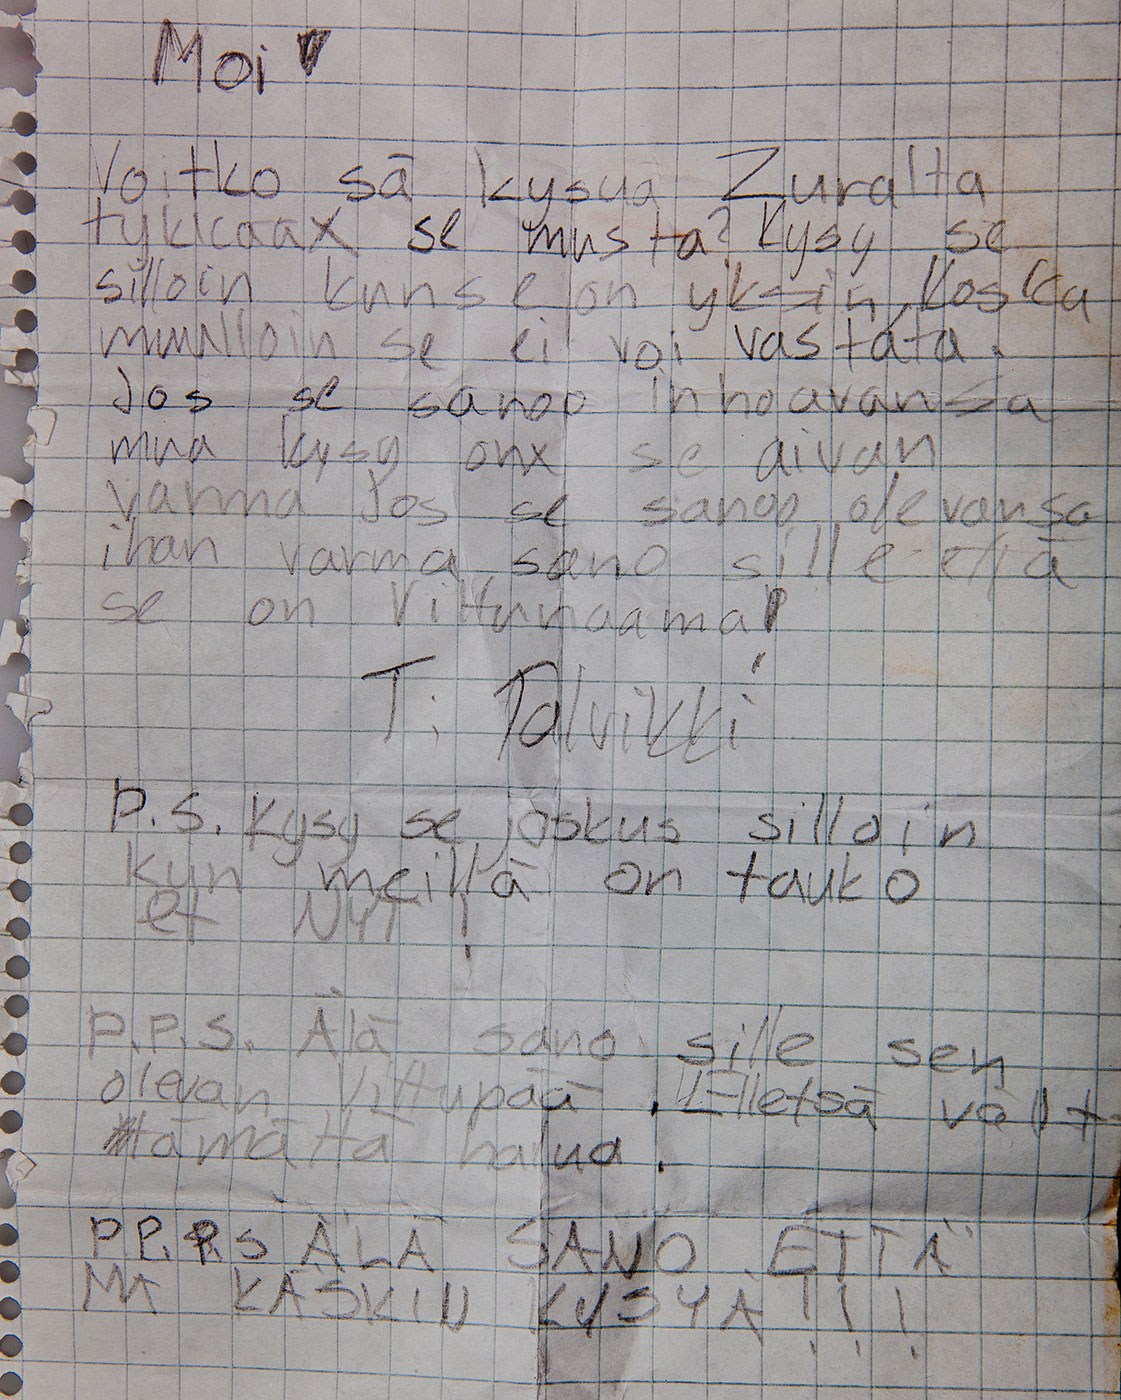 Moi!
Voitko sä kysyä Zuralta
tykkääx se musta? Kysy se
silloin kun se on yksin, koska
muulloin se ei voi vastata.
Jos se sanoo inhoavansa
mua kysy onx se aivan
varma Jos se sanoo olevansa
ihan varma sano sille että
se on Vittunaama!
T; Talvikki
P.S. Kysy se joskus silloin
kun meillä on tauko
et NYT!
P.P.S. Älä sano sille sen
olevan Vittupää. Elletsä vält-
tämättä halua.
P.P.P.S ÄLÄ SANO ETTÄ
MÄ KÄSKIN KYSYÄ!!!